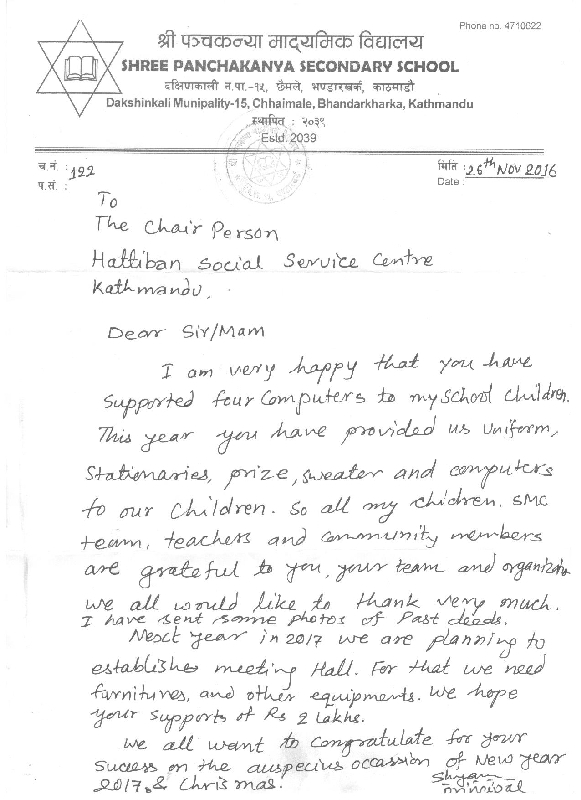 Phone no. 4710622
श्री पञ्चकन्या माद्यमिक विद्यालय
SHREE PANCHAKANYA SECONDARY SCHOOL
दक्षिणकाली न.पा.-१५, छैमले, भण्डारखर्क, काठमाडौं
Dakshinkali Munipality-15, Chhaimale, Bhandarkharka, Kathmandu
स्थापित : २०३९
Estd. 2039
च.नं. : 122
मिति : 26th Nov 2016
प.सं. :
Date :
To
The Chair Person
Hattiban Social Service Centre
Kathmandu.
Dear Sir/Mam
I am very happy that you have
supported four computers to my school children.
This year you have provided us uniform,
Stationaries, prize, sweater and computers
to our children. So all my chidren. SMC
team, teachers and community members
are grateful to you, your team and organization
we all would like to thank very much.
I have sent some photos of Past deeds.
Next year in 2017 we are planning to
establishe meeting Hall. For that we need
furnitures, and other equipments. We hope
your supports of Rs 2 lakhs.
We all want to congratulate for your
Sucess on the auspecius occassion of New year
2017, & Chrismas.
Shyam
Principal